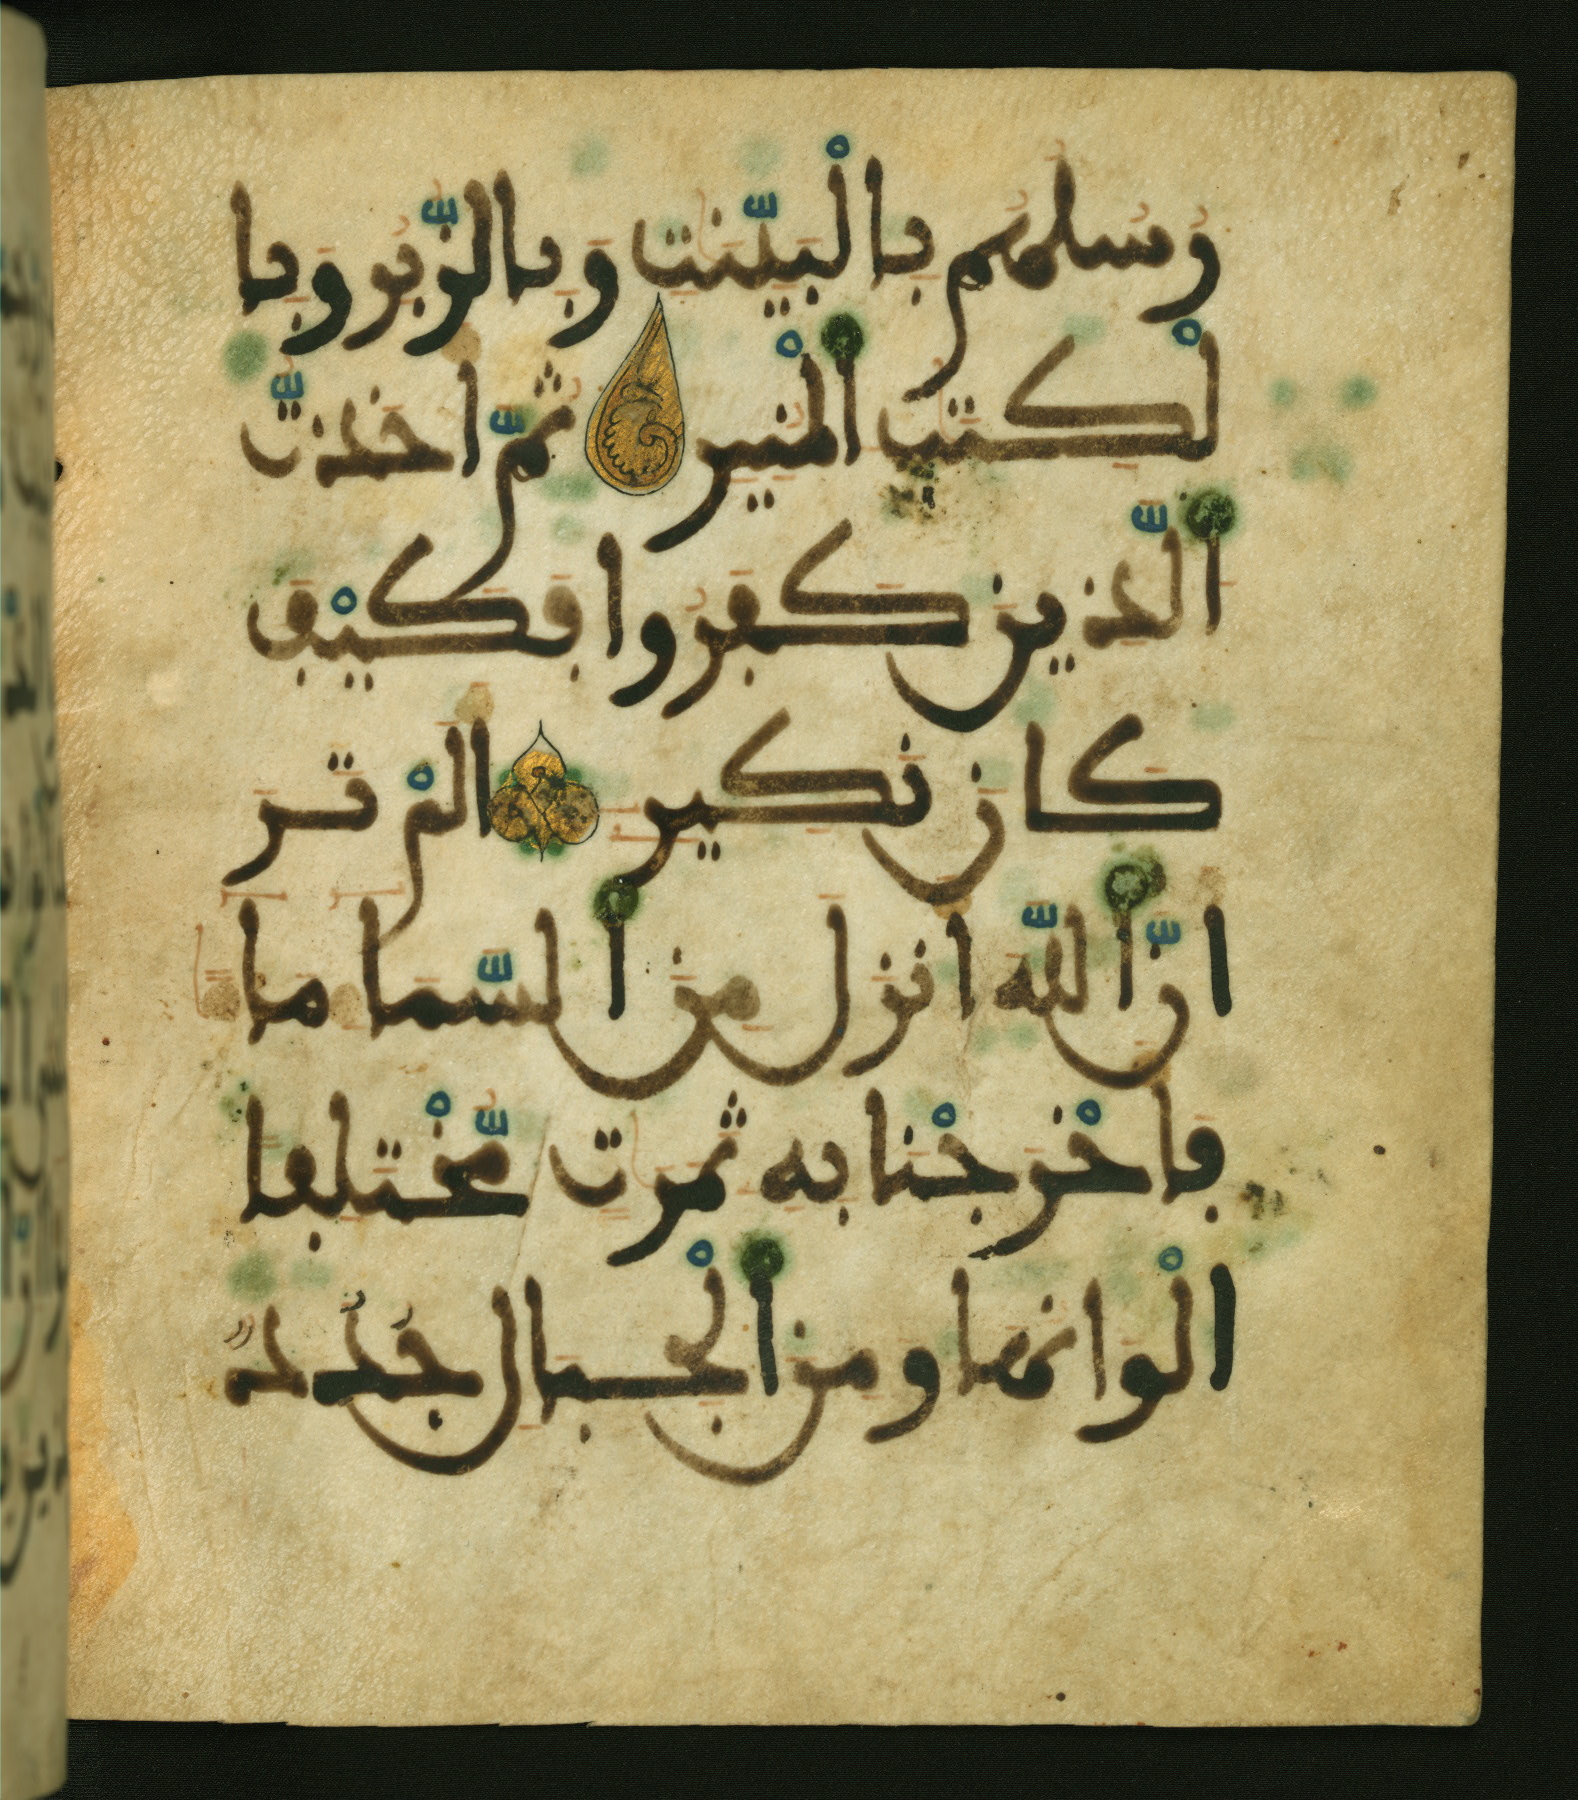 رُسُلُهُم بِالْبَيِّنَٰتِ وَبِالزُّبُرِ وَبِا
لْكِتَٰبِ الْمُنِيرِ ثُمَّ أَخَذتُّ
الَّذِينَ كَفَرُوا فَكَيْفَ
كَانَ نَكِيرِ أَلَمْ تَرَ
أَنَّ اللَّهَ أَنزَلَ مِنَ السَّمَاءِ مَاءً
فَأَخْرَجْنَا بِهِ ثَمَرَٰتٍ مُّخْتَلِفًا
أَلْوَانُهَا وَمِنَ الْجِبَالِ جُدَدٌ